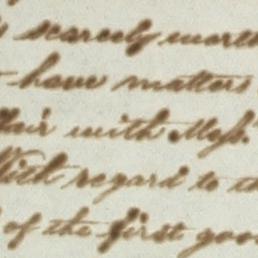 scarcely worth
have matters
with Mess.
With regard to th
of the first goo